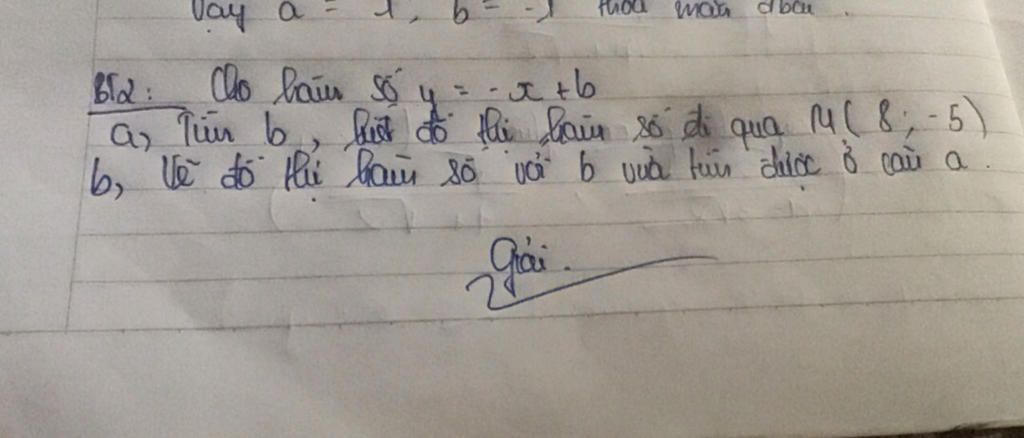 Vậy a = 1, b = -1 thoả mãn đbài.
BT2: Cho hàm số y = -x + b
a, Tìm b, biết đồ thị hàm số đi qua M( 8 ; -5)
b, Vẽ đồ thị hàm số với b vừa tìm được ở câu a.
Giải.